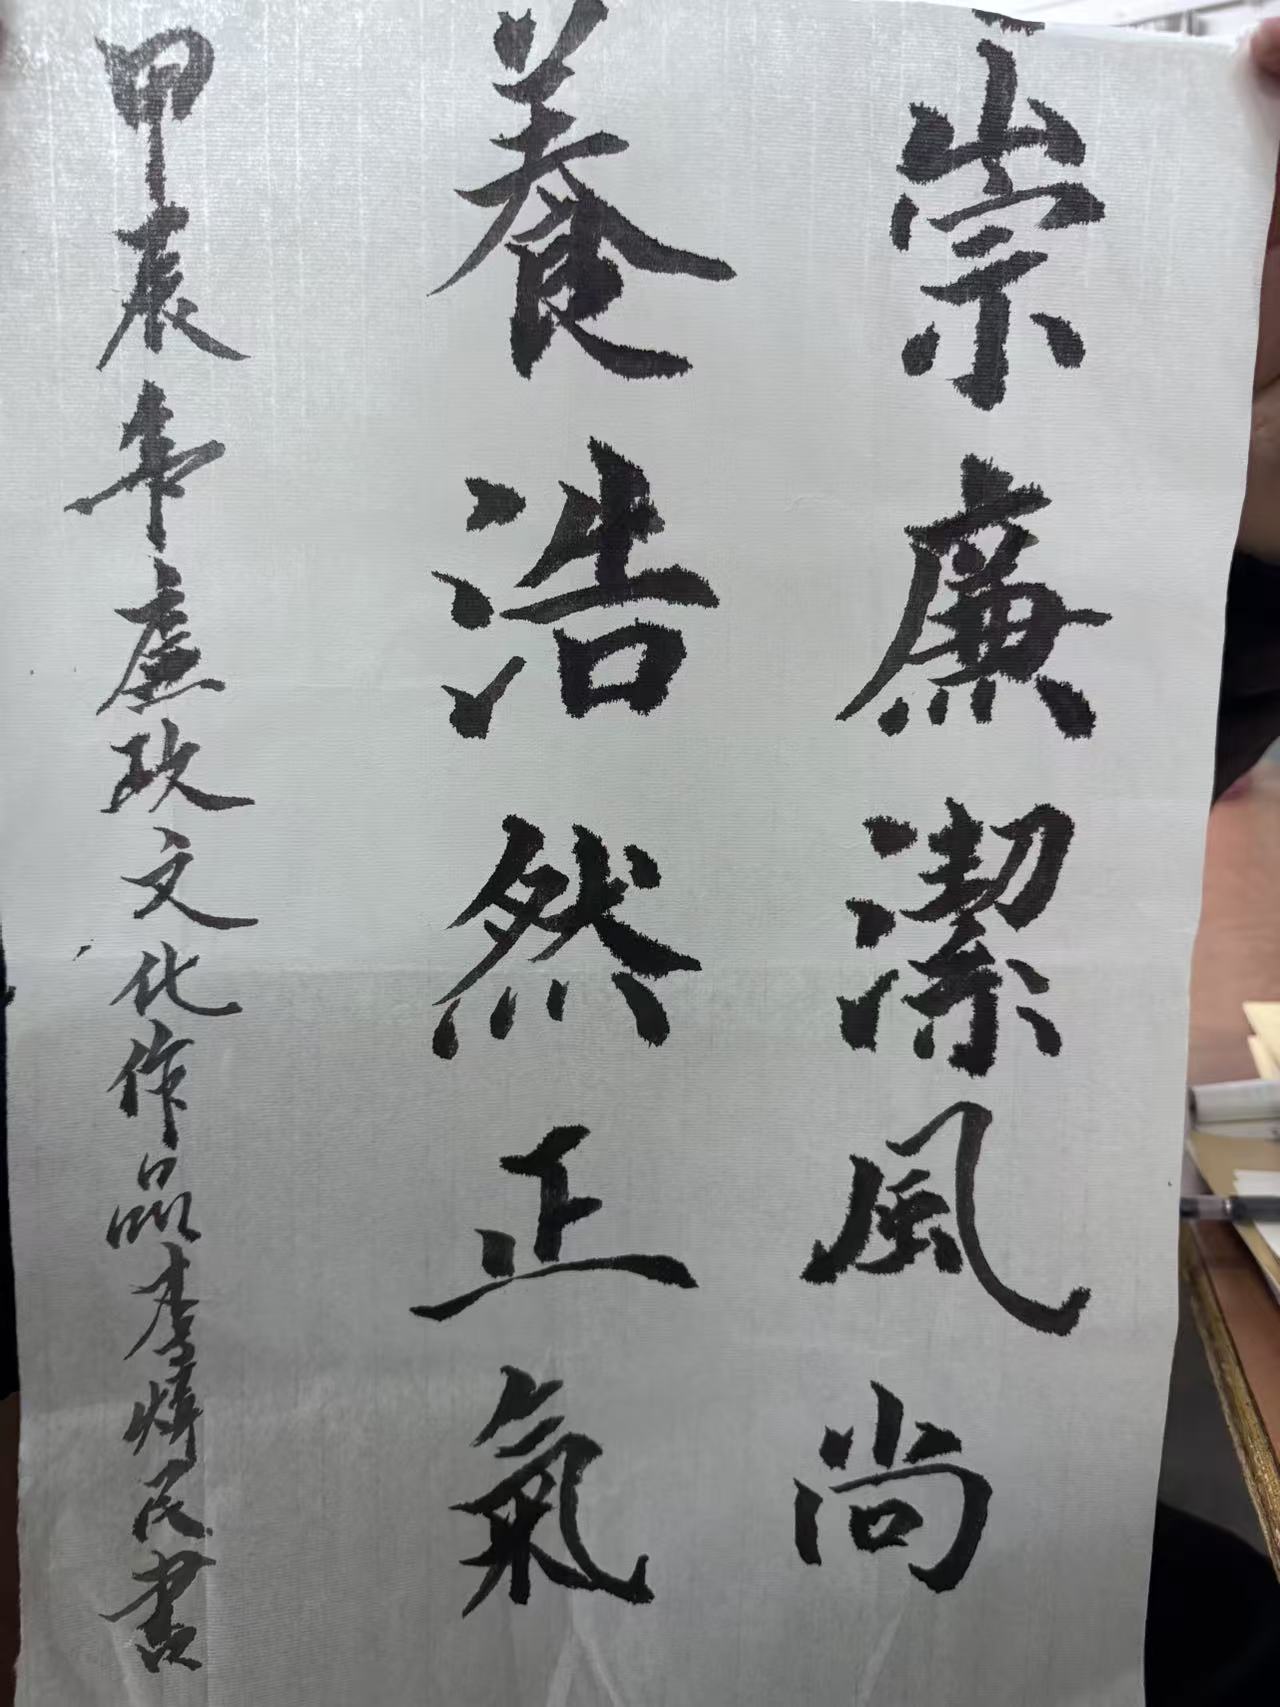 崇廉潔風尚
養浩然正氣
甲辰年廉政文化作品李煒民書